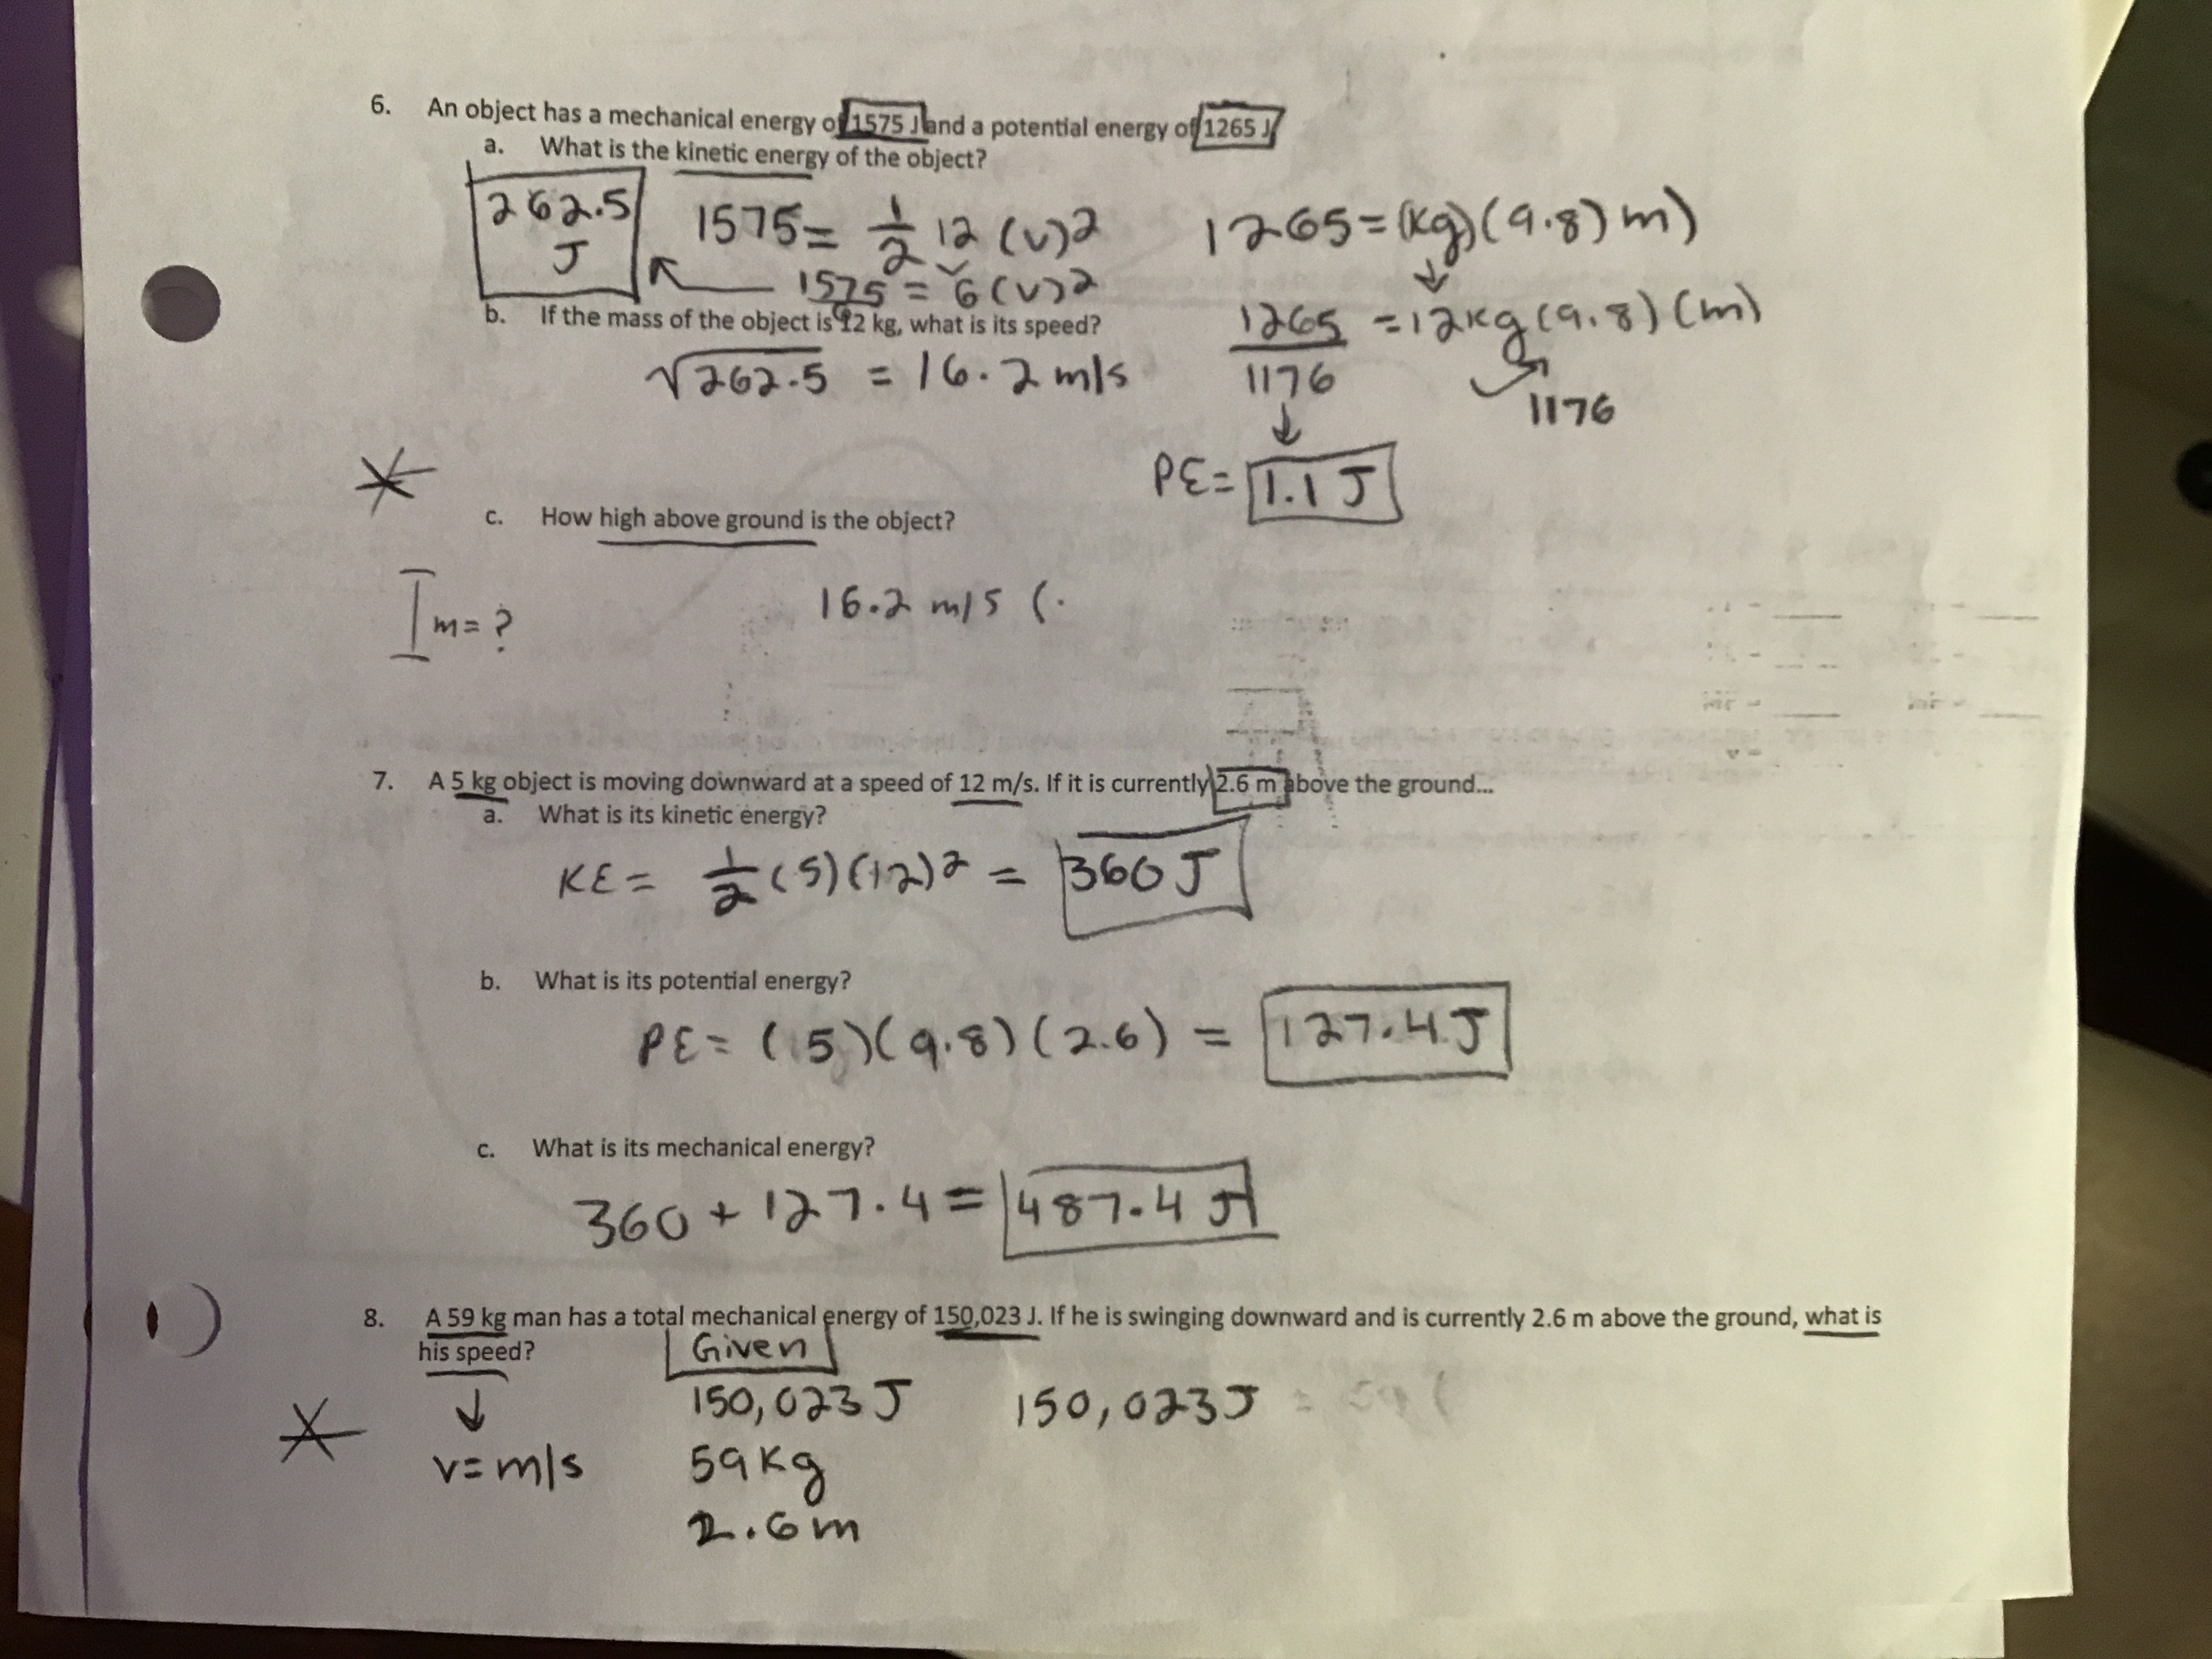 6. An object has a mechanical energy of 1575 J and a potential energy of 1265 J
a. What is the kinetic energy of the object?
262.5 J
1575 = 1/2 12 (v)2
1575 = 6 (v)2
6
1265 = (kg)(9.8) m)
b. If the mass of the object is 12 kg, what is its speed?
√262.5 = 16.2 m/s
1265 = 12kg (9.8) (m)
1176
1176
PE = 1.1 J
c. How high above ground is the object?
m = ?
16.2 m/s (.
7. A 5 kg object is moving downward at a speed of 12 m/s. If it is currently 2.6 m above the ground...
a. What is its kinetic energy?
KE = 1/2 (5)(12)2 = 360 J
b. What is its potential energy?
PE = (5)(9.8)(2.6) = 127.4 J
c. What is its mechanical energy?
360 + 127.4 = 487.4 J
8. A 59 kg man has a total mechanical energy of 150,023 J. If he is swinging downward and is currently 2.6 m above the ground, what is
his speed?
v = m/s
Given
150,023 J
59 Kg
2.6 m
150,023 J